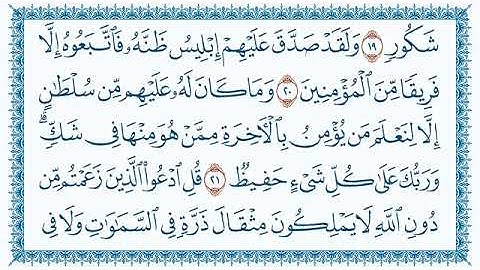 شَكُورٍ ١٩ وَلَقَدْ صَدَّقَ عَلَيْهِمْ إِبْلِيسُ ظَنَّهُۥ فَٱتَّبَعُوهُ إِلَّا
فَرِيقًا مِّنَ ٱلْمُؤْمِنِينَ ٢٠ وَمَا كَانَ لَهُۥ عَلَيْهِم مِّن سُلْطَٰنٍ
إِلَّا لِنَعْلَمَ مَن يُؤْمِنُ بِٱلْءَاخِرَةِ مِمَّنْ هُوَ مِنْهَا فِى شَكٍّ ۗ
وَرَبُّكَ عَلَىٰ كُلِّ شَىْءٍ حَفِيظٌ ٢١ قُلِ ٱدْعُوا۟ ٱلَّذِينَ زَعَمْتُم مِّن
دُونِ ٱللَّهِ لَا يَمْلِكُونَ مِثْقَالَ ذَرَّةٍ فِى ٱلسَّمَٰوَٰتِ وَلَا فِى